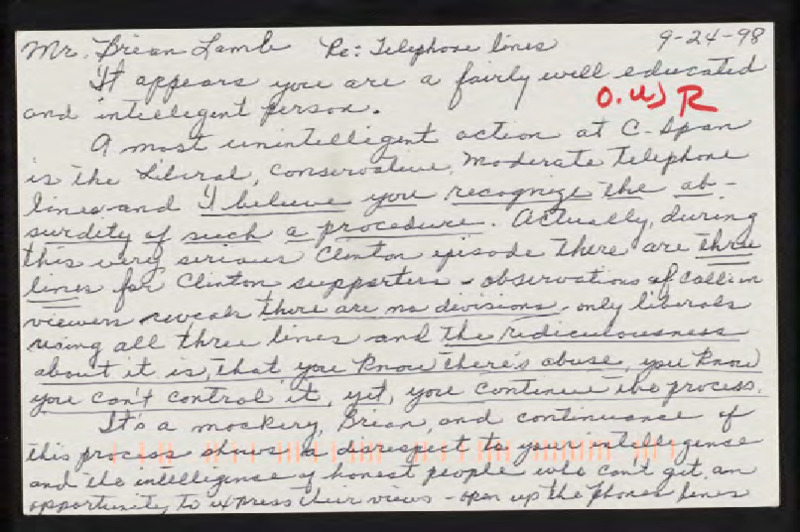 Mr. Brian Lamb Re: Telephone lines 9-24-98
It appears you are a fairly well educated
and intelligent person. O.W R
A most unintelligent action at C-Span
is the Liberal, Conservative, Moderate Telephone
lines and I believe you recognize the ab-
surdity of such a procedure. Actually, during
this very serious Clinton episode there are three
lines for Clinton supporters - observations of call-in
viewers reveals there are no divisions, only liberals
using all three lines and the ridiculousness
about it is, that you know there's abuse, you know
you can't control it, yet, you continue the process.
It's a mockery, Brian, and continuance of
this process shows a disrespect to your intelligence
and the intelligence of honest people who can't get an
opportunity to express their views - open up the phone lines